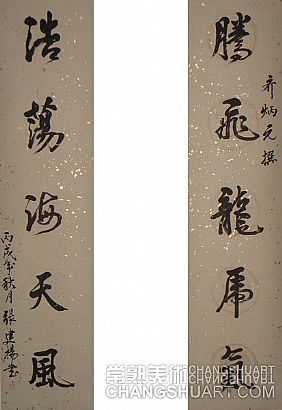 齐炳元撰
騰飛龍虎氣
浩蕩海天風
丙戌年秋月張建揚书
常熟美術
CHANGSHUART
CHANGSHUART